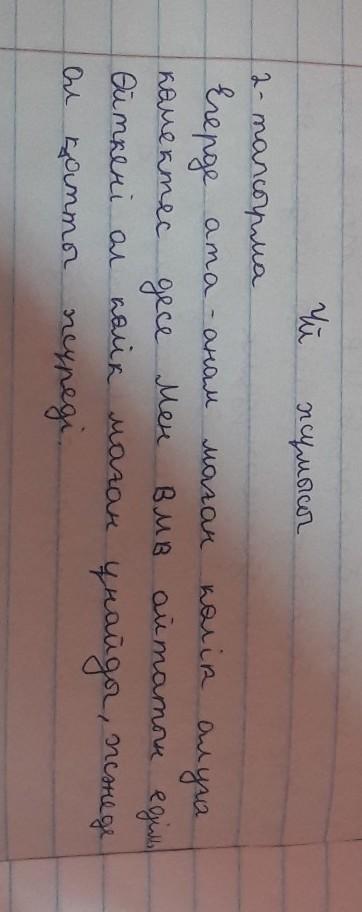 Үй жұмысы
2-тапсырма
Егерде ата-анам маған көлік алуға
көмектес десе Мен BMB айтатын едім,
Өйткені ол көлік маған ұнайды, және де
ол қатты жүреді.